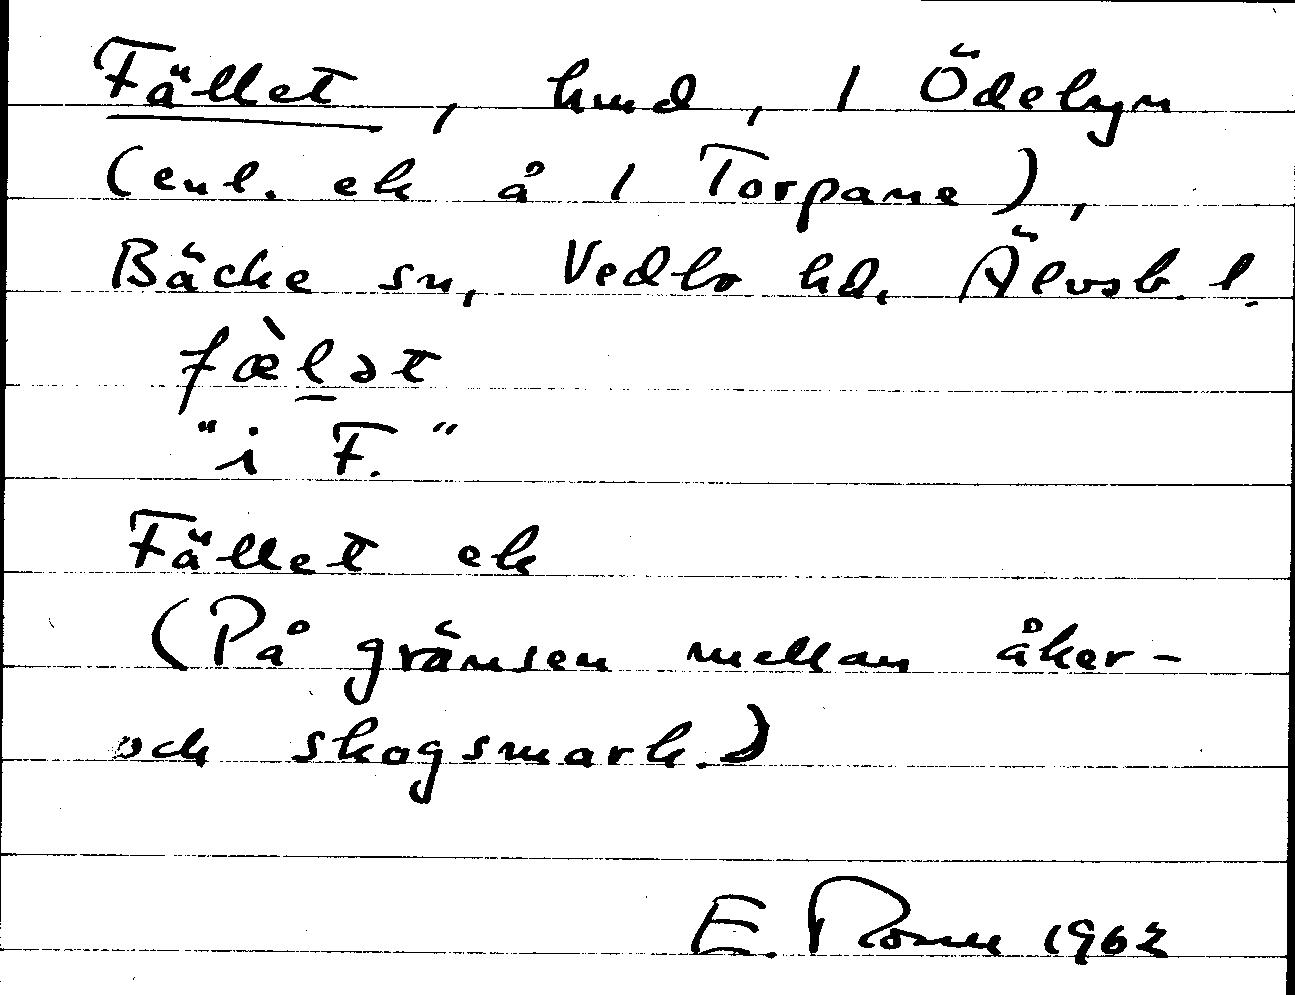 Fället, hmd, 1 Ödebyn
(enl. ek å 1 Torpane),
Bäcke sn, Vedbo hd, Älvsb. l.
fæ̀l̲ət
"i F."
Fället ek
(På gränsen mellan åker-
och skogsmark.)
E. 1962